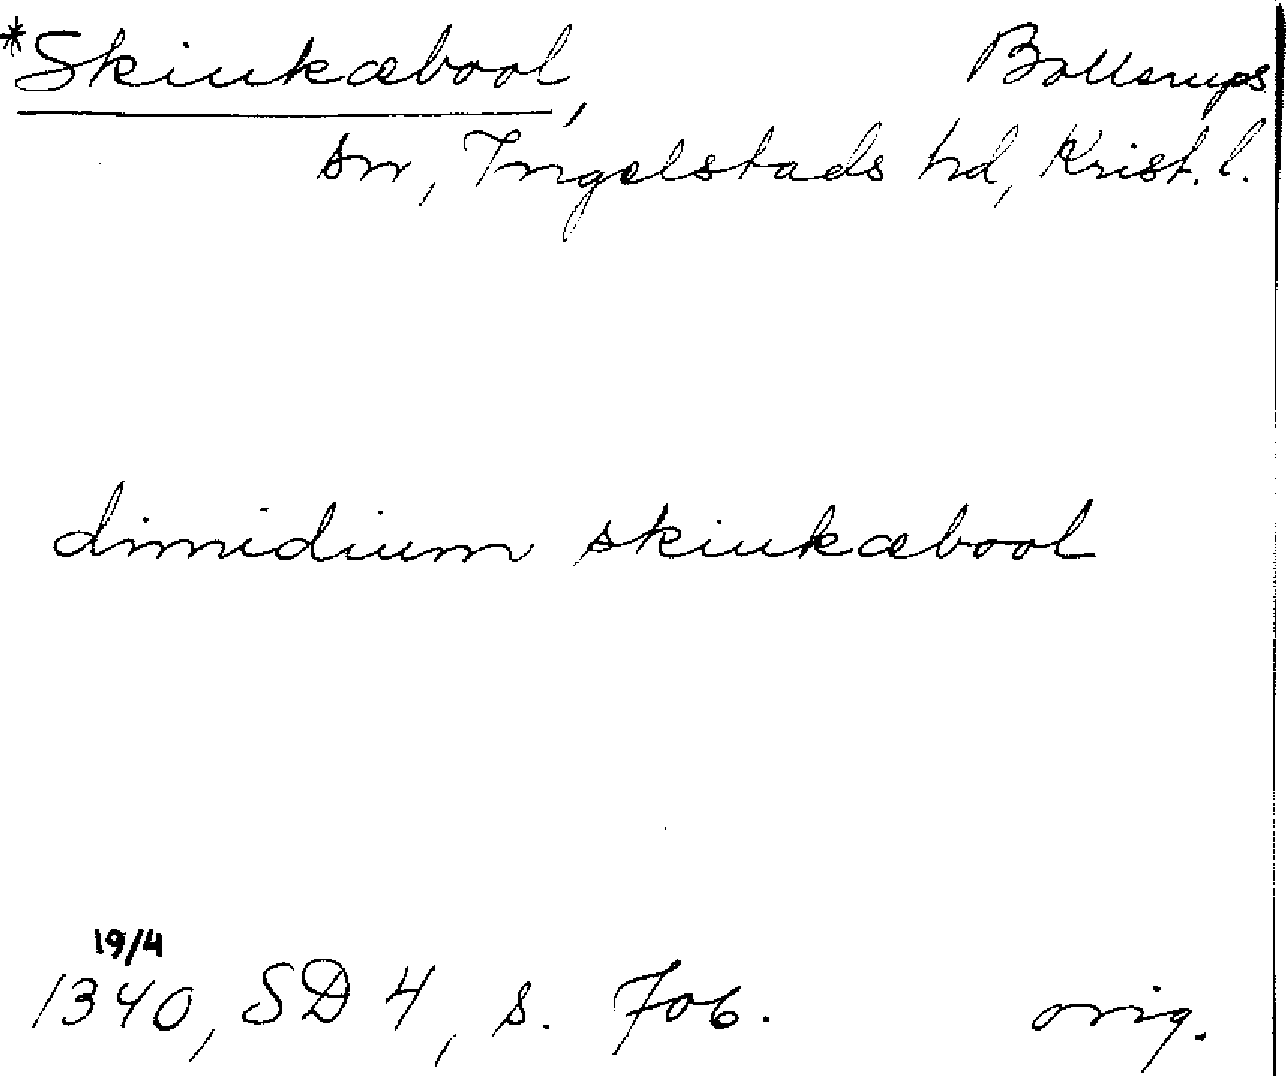 *Skiukæbool, Bollerups
sn, Ingelstads hd, Krist. l.
dimidium skiukæbool
19/4
1340, SD 4, s. 706. orig.